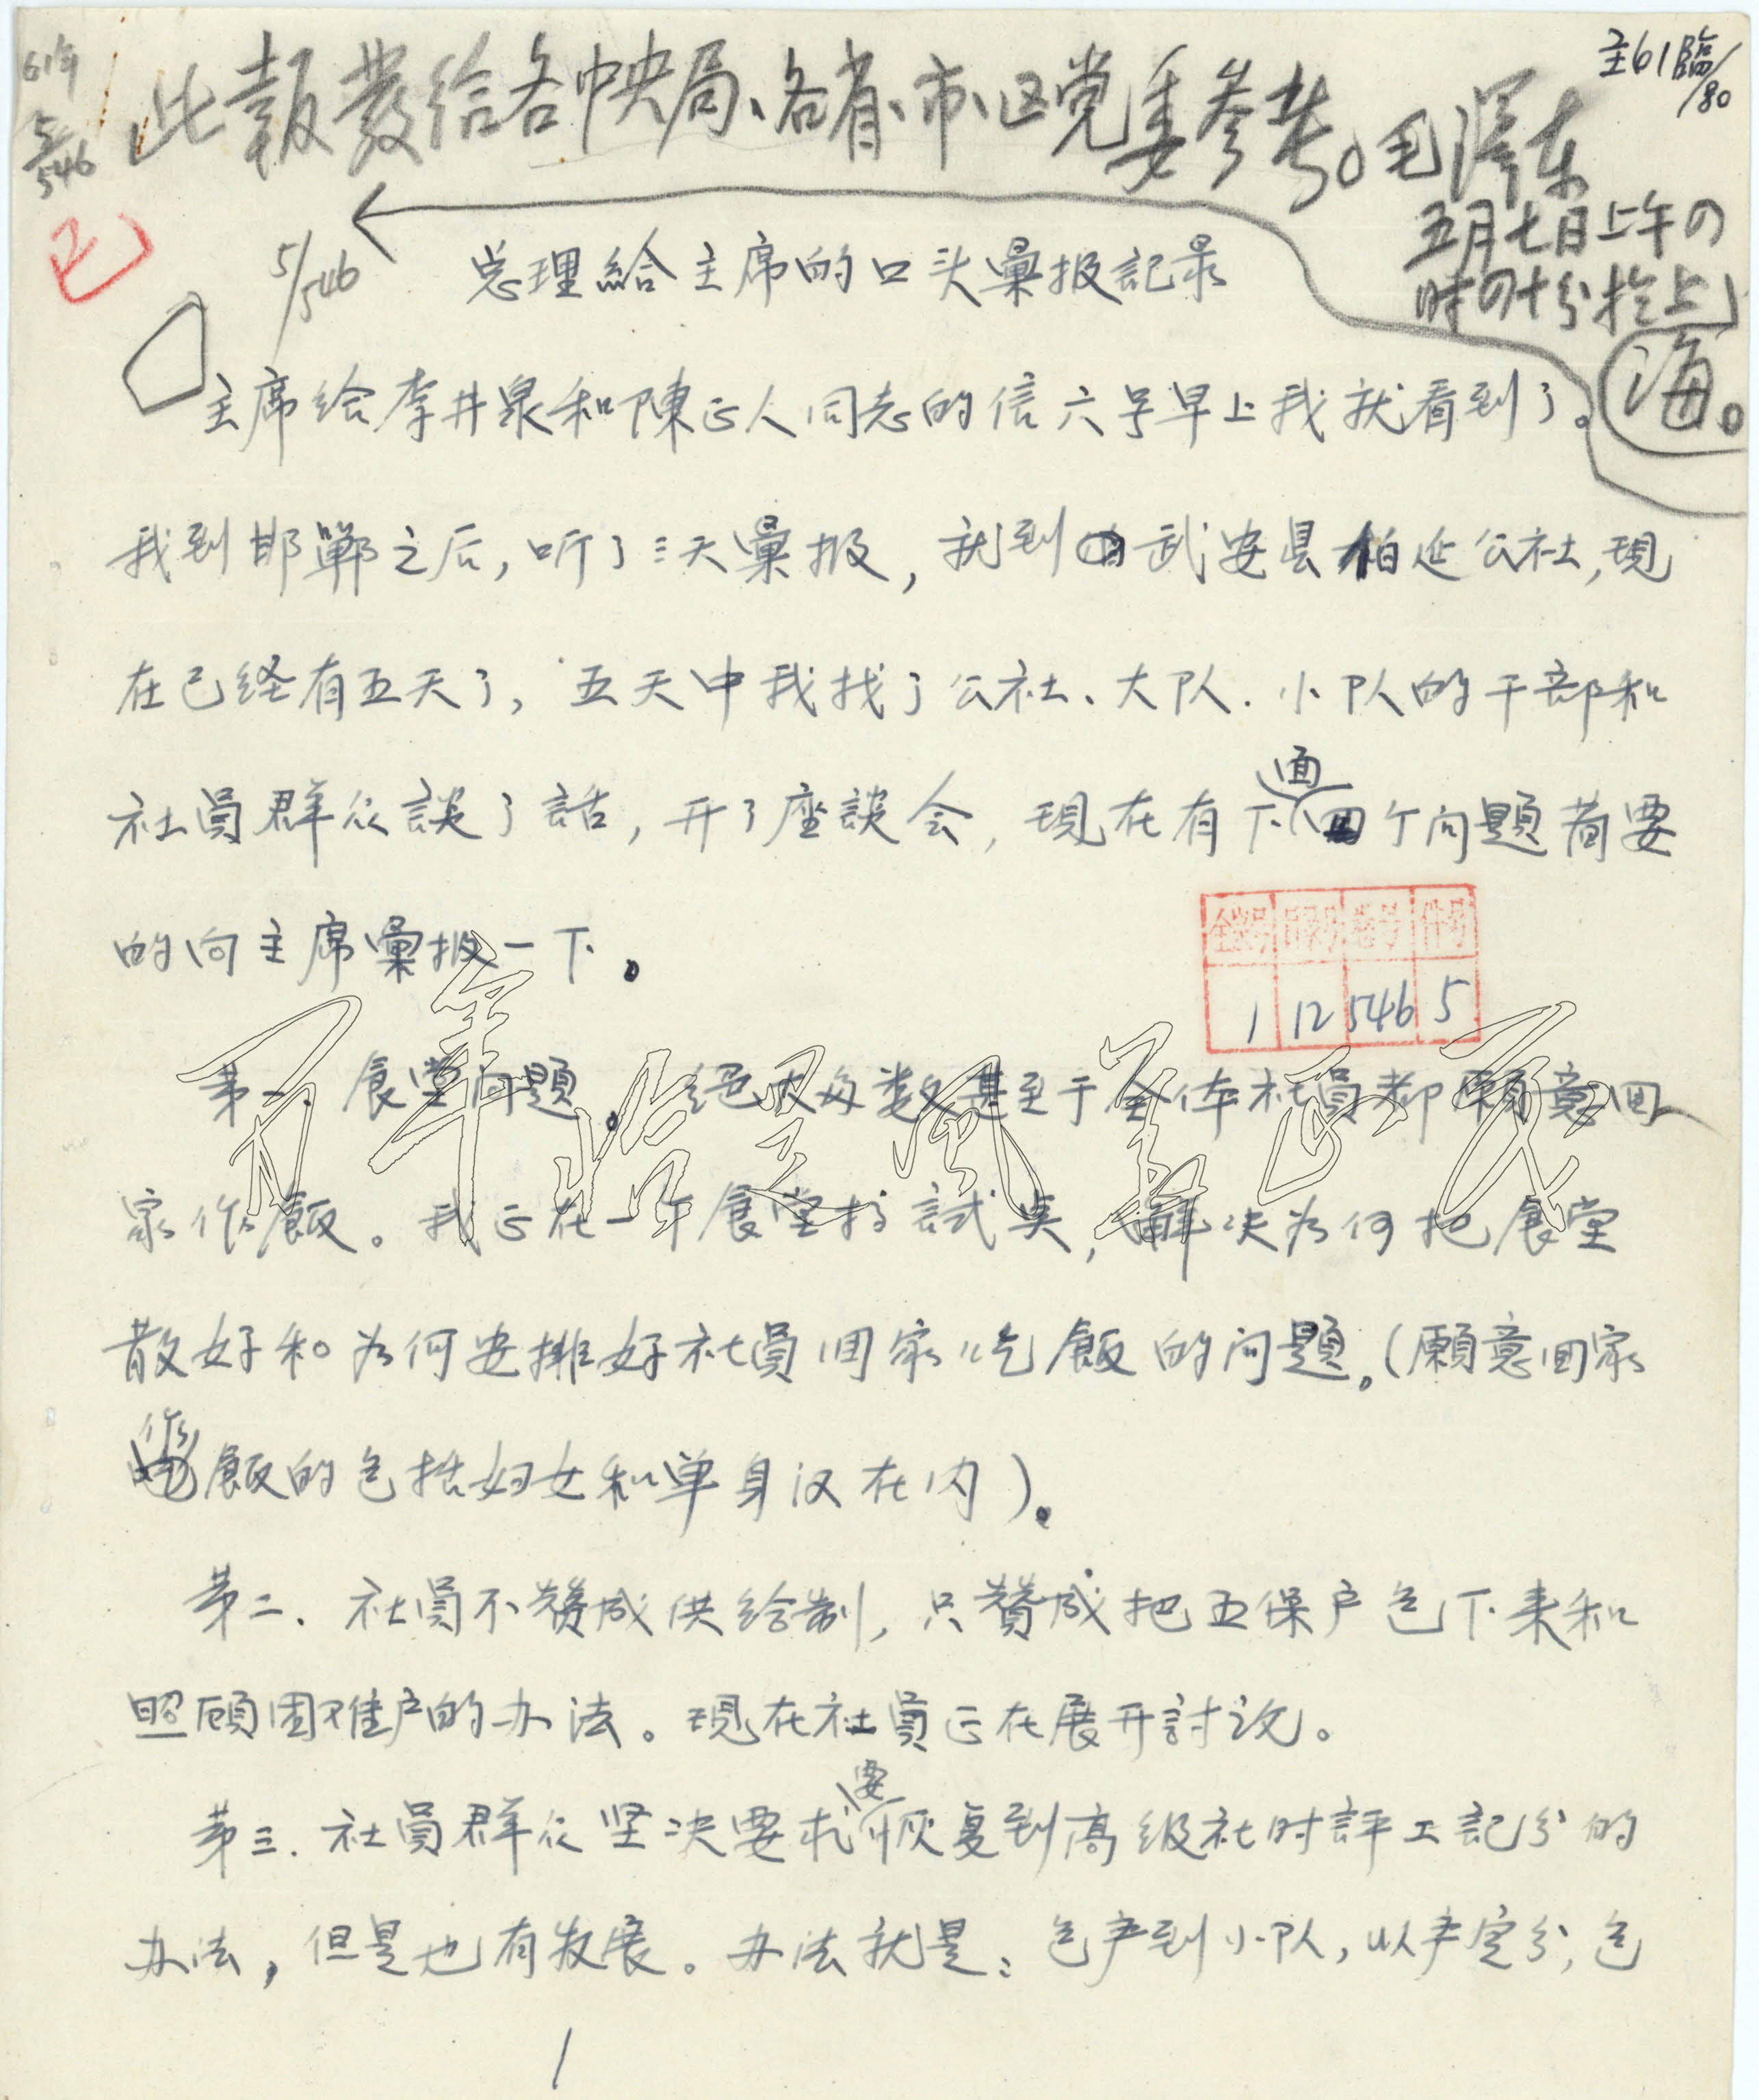 61年
5/546
主61臨/80
此報發给各中央局、各省、市、区党委参考。毛澤东
五月七日上午の
时の十分於上
海。
5/546
总理給主席的口头彙报記录
主席给李井泉和陳正人同志的信六号早上我就看到了。
我到邯鄲之后，听了三天彙报，就到武安县柏延公社，現
在已经有五天了，五天中我找了公社、大队、小队的干部和
社員群众談了話，开了座談会，現在有下面四个问題简要
的向主席彙报一下。
全宗号 目录号 卷号 件号
1 12 546 5
第一、食堂问題。絕大多数甚至于全体社員都願意回
家作飯。我正在一个食堂搞試点，解决如何把食堂
散好和如何安排好社員回家吃飯的问題。（願意回家
作飯的包括妇女和单身汉在内）。
第二、社員不赞成供给制，只赞成把五保户包下来和
照顾困难户的办法。現在社員正在展开討论。
第三、社員群众坚决要求要恢复到高级社时評工記分的
办法，但是也有发展。办法就是：包产到小队，以产定分，包
1